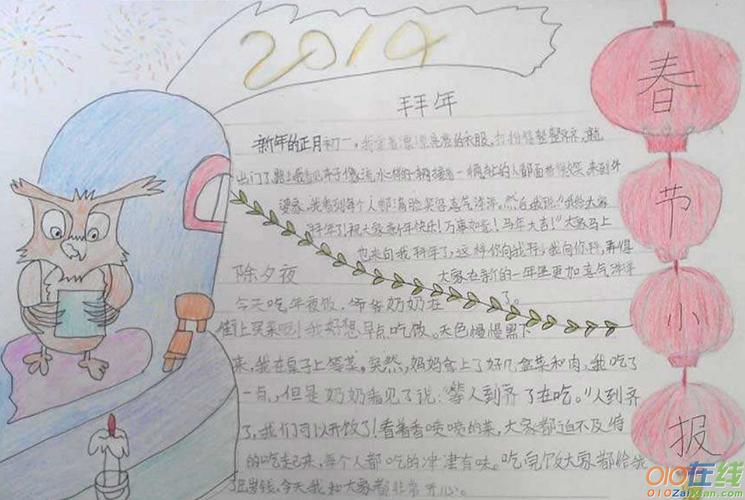 2014
春节小报
拜年
新年的正月初一，我穿着漂漂亮亮的衣服，打扮得整整齐齐，就
出门了。路上
每个人都满脸笑容喜气洋洋。然后我说："我给大家
拜年了！祝大家新年快乐！万事如意！马年大吉！"大家马上
也来向我拜年了，这样你向我拜，我向你拜，
大家在新的一年里更加喜气洋洋
了。
除夕夜
今天吃年夜饭，爷爷奶奶在
街上买菜呢！我好想早点吃饭。天色慢慢黑下
来，我在桌子上等菜。突然，妈妈拿上了好几盒菜和肉，我吃了
一点，但是奶奶看见了说："等人到齐了在吃。"人到齐
了，我们可以开饭了！看着香喷喷的菜，大家都迫不及待
的吃起来，每个人都吃的津津有味。吃完饭大家都给我
压岁钱，今天我和大家都非常开心。
010在线
010ZaiXian.com